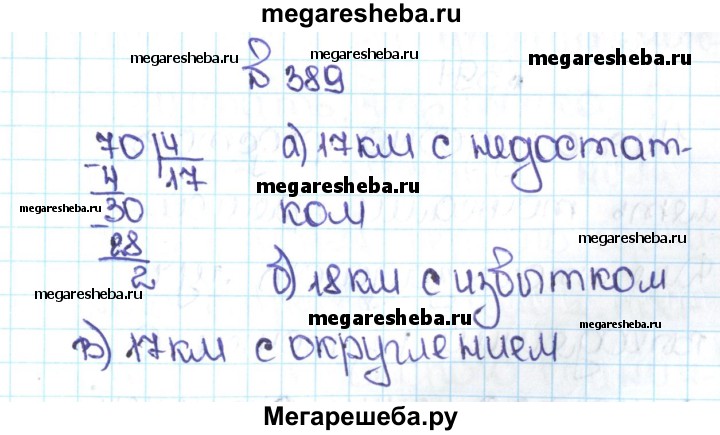 megaresheba.ru
megaresheba.ru megaresheba.ru megaresheba.ru
№ 389
70 4 а) 17 км с недостат-
- 4 17 megaresheba.ru
megaresheba.ru - 30 ком
28
2 б) 18 км с извытком
megaresheba.ru megaresheba.ru megaresheba.ru
в) 17 км с округлением
Мегарешеба.ру